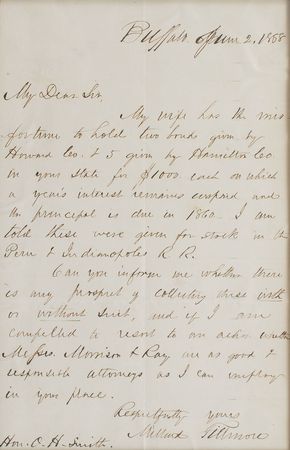 Buffalo June 2, 1858
My Dear Sir,
My wife has the mis
fortune to hold two bonds given by
Howard Co. & 5 given by Hamilton Co
in your state for $1000. each on which
a year's interest remains unpaid and
the principal is due in 1860. I am
told these were given for stock in the
Peru & Indianapolis R. R.
Can you inform me whether there
is any prospect of collecting these with
or without suit, and if I am
compelled to resort to an action whether
Messrs. Morrison & Ray are as good &
responsible attorneys as I can employ
in your place.
Respectfully yours
Millard Fillmore
Hon. O. H. Smith.